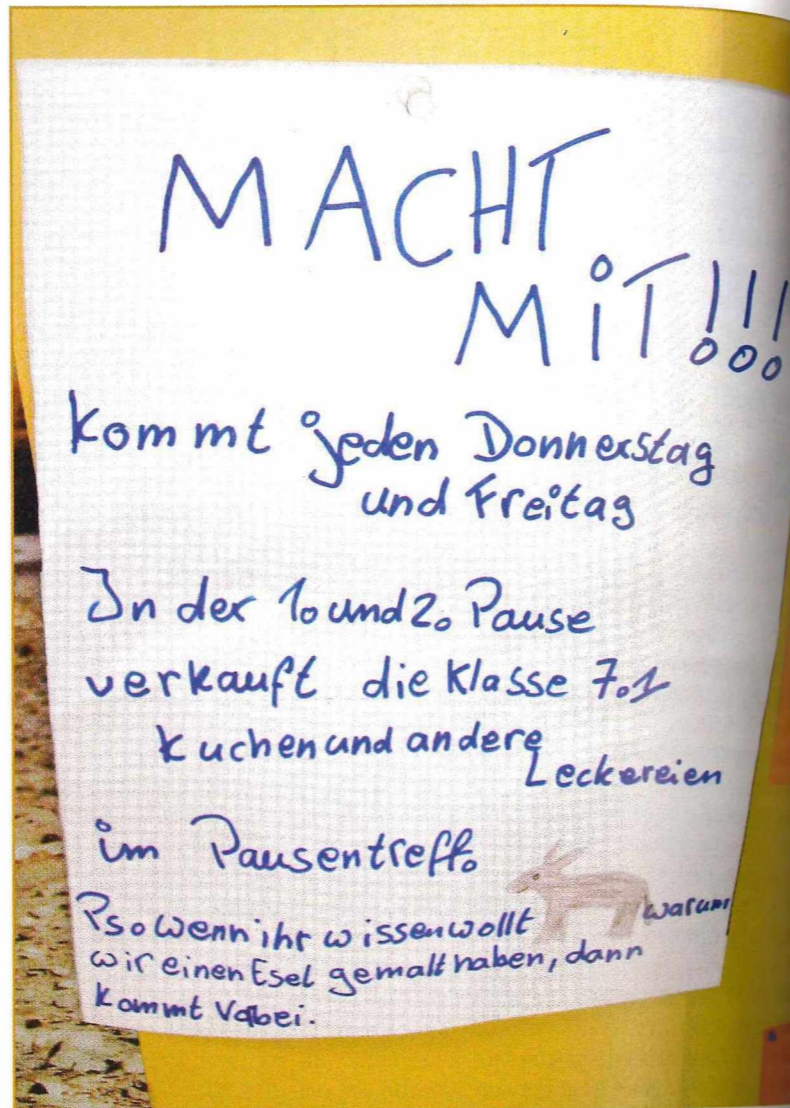 MACHT
MiT!!!
kommt jeden Donnerstag
und Freitag
In der 1. und 2. Pause
verkauft die Klasse 7.1
Kuchen und andere
Leckereien
im Pausentreff.
Ps. Wenn ihr wissen wollt warum
wir einen Esel gemalt haben, dann
kommt Vorbei.